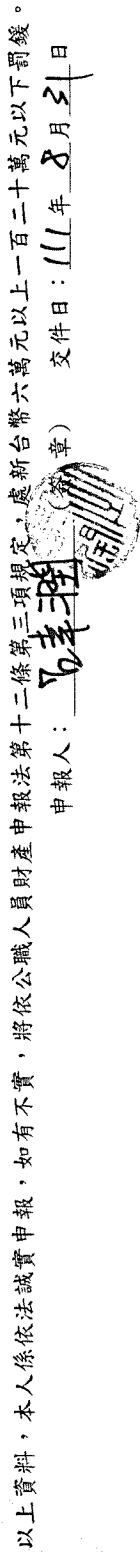 以上資料，本人係依法誠實申報，如有不實，將依公職人員財產申報法第十二條第三項規定，處新台幣六萬元以上一百二十萬元以下罰鍰。
申報人： （簽章） 交件日：111年8月31日